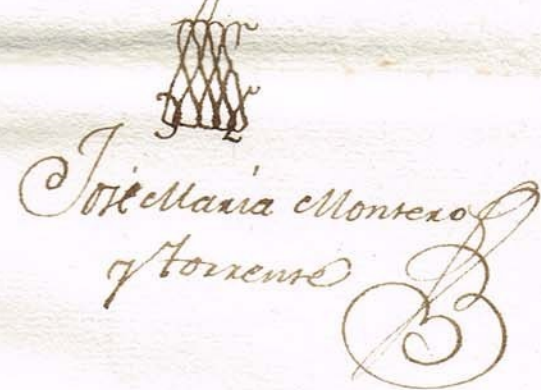 José Maria Montero
y torrente